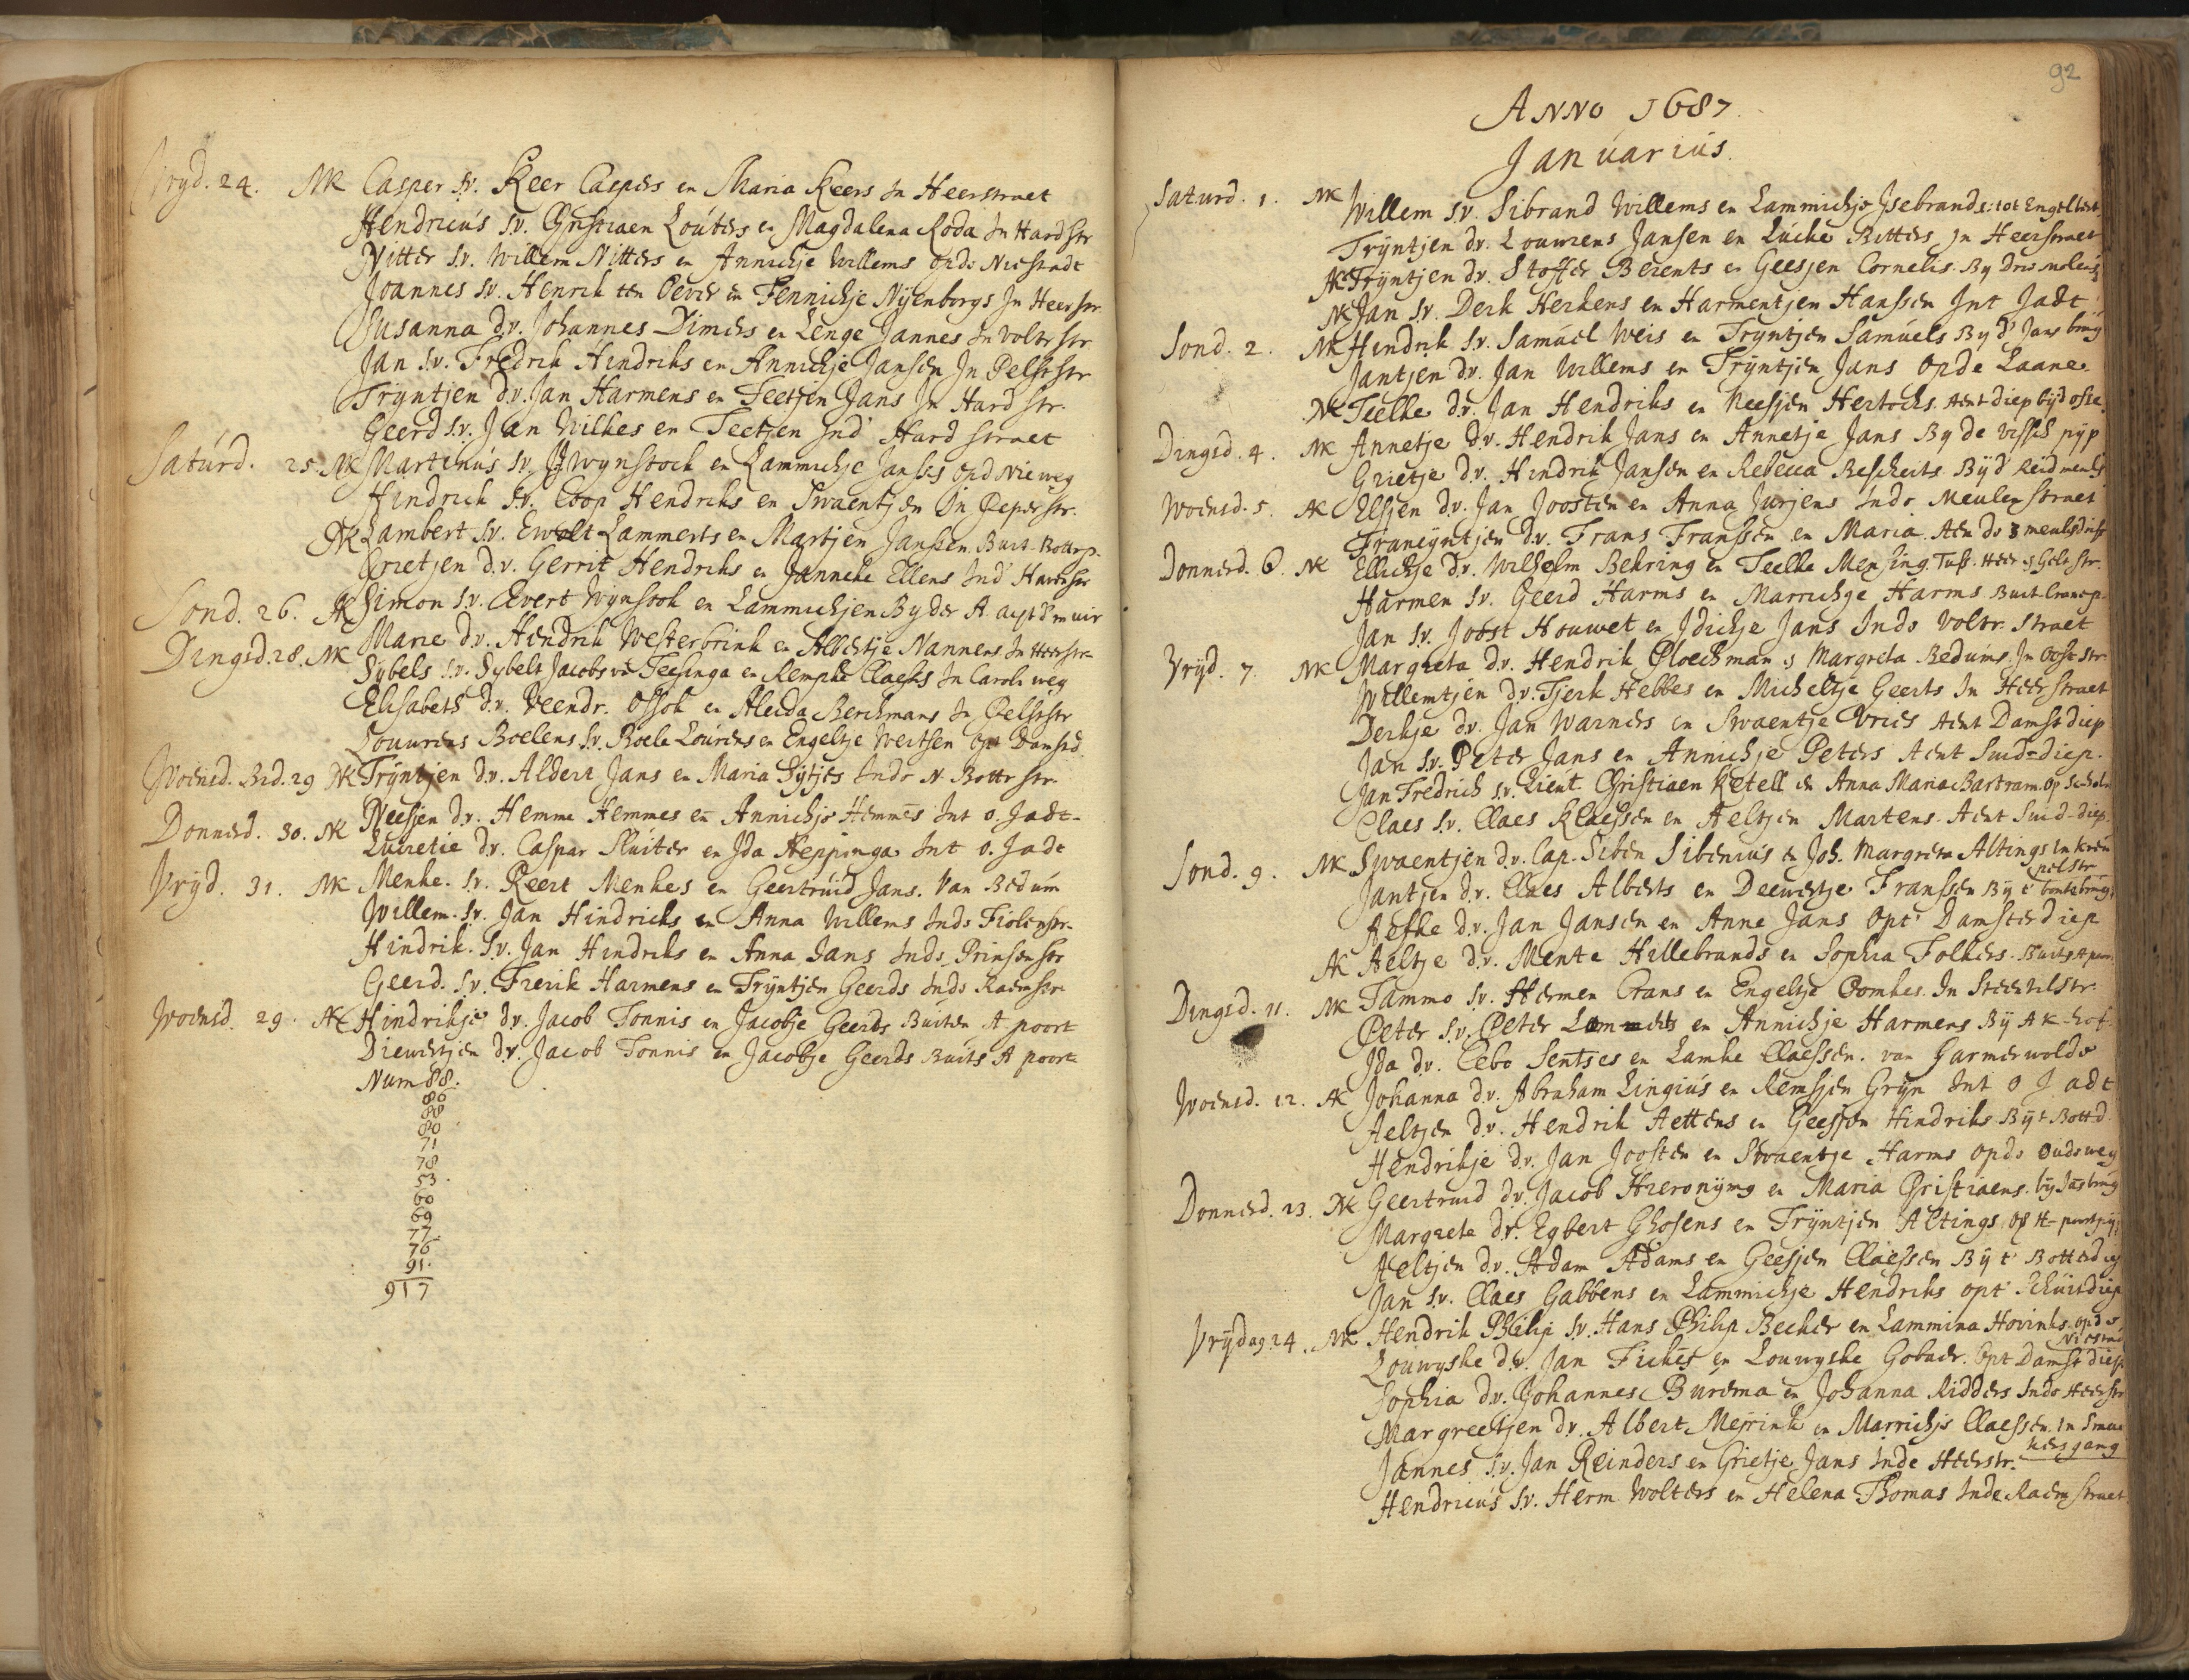 Vryd. 24. NK Casper s.v. Keer Caspers en Maria Keers in Heerstraet
Hendricus s.v. Christiaen Louters en Magdalena Roda In Hardstr
Nitter s.v. Willem Nitters en Annichje Willems op de Niestadt
Joannes s.v. Henrik ten Oever en Fennichje Nyenborgs In Heerstr
Susanna d.v. Johannes Dimers en Lenge Jannes In Volterstr
Jan s.v. Fredrik Hendriks en Annichje Jansen In Pelsterstr
Trijntjen d.v. Jan Harmens en Teetjen Jans In Hard str.
Geerd s.v. Jan Wilkes en Teetjen Ind' Hard straet
Saturd. 25. NK Martinus s.v. Wynstock en Lammichje Jansss op d Nieweg
Hindrick s.v. Coop Hendriks en Swaentjen In Peperstr.
NK Lambert s.v. Ewolt Lammerts en Martjen Janssen. Buit. Botterp.
Grietjen d.v. Gerrit Hendriks en Janneke Ellens Ind' Hardstr
Sond. 26. AK Simon s.v. Evert Wynstok en Lammichjen By der A acht d muir
Dingsd. 28. NK Marie d.v. Hendrik Westerbrink en Albertje Nannens In Heerstr
Sybels s.v. Sybelt Jacobs van Teesinga en Rempke Claesss In Caroliweg
Elisabeth d.v. Veendr. Ossok en Aleida Berchmans In Pelsterstr
Louwrens Boelens s.v. Boele Lourens en Engeltje Wertsen Opt Damsterd.
Woensd. Bed. 29 NK Trijntjen d.v. Aldert Jans en Maria Sijtjes Inde N. Botterstr.
Donnerd. 30. NK Neesjen d.v. Hemme Hemmes en Annichje Hemmes Int o. Jadt
Lucretie d.v. Caspar Sluiter en Ida Heppinga Int o. Jadt
Vryd. 31. NK Menke s.v. Reert Menkes en Geertruid Jans. Van Bedum
Willem s.v. Jan Hindricks en Anna Willems Inde Fiolenstr.
Hindrik s.v. Jan Hindriks en Anna Jans Inde Prinsenstr
Geerd s.v. Frerik Harmens en Trijntjen Geerds Inde Raemstr
Woensd. 29. AK Hindrikje d.v. Jacob Tonnis en Jacobje Geerds Buiten A poort
Diewertjen d.v. Jacob Tonnis en Jacobje Geerds Buits A poort
Num 88.
86
88
80
71
78
53.
60
69
77.
76
91.
917
92
ANNO 1687.
Januarius.
Saturd. 1. NK Willem s.v. Sibrand Willems en Lammichje Ysebrands: tot Engelbert
Trijntjen d.v. Louwrens Jansen en Lucke Ritters In Heerstraet
AK Trijntjen d.v. Stoffer Berents en Geesjen Cornelis. By drie molens
NK Jan s.v. Derk Herkens en Harmentjen Hanssen Int Jadt
Sond. 2. NK Hendrik s.v. Samuel Weis en Tryntjen Samuels By d' Jans brug
Jantjen d.v. Jan Willems en Trijntjen Jans Op de Laane
NK Teelke d.v. Jan Hendriks en Neesjen Hertochs. Aent diep bijd osse
Dingsd. 4. NK Annetje d.v. Hendrik Jans en Annetje Jans By de Visscher pyp
Grietje d.v. Hindrik Jansen en Rebecca Rescheits Byd' Reidmerkt
Woensd. 5. AK Elsjen d.v. Jan Joosten en Anna Jurjens Inde Meulenstraet
Francyntjen d.v. Frans Franssen en Maria. Aen de 3 meulsdrift
Donnerd. 6. NK Ellichje d.v. Wilhelm Behring en Teelke Mensing. Tuss. Heer en Gelk str.
Harmen s.v. Geerd Harms en Marrichge Harms Buit. Cranep.
Jan s.v. Joost Houwet en Idichje Jans Inde Volter straet
Vryd. 7. NK Margreta d.v. Hendrik Ploechman en Margreta Bedums. In Oosterstr
Willemtjen d.v. Tjerk Hebbes en Micheltje Geerts In Heerstraet
Derkje d.v. Jan Warners en Swaentje Vries Aent Damster diep
Jan s.v. Peter Jans en Annichje Peters Aent Suid=diep.
Jan Fredrich s.v. Lieut. Christiaen Ketell en Anna Maria Bartram. Op Scholm
Claes s.v. Claes Klaessen en Aeltjen Martens. Aent Suid-diep.
Sond. 9. NK Swaentjen d.v. Cap. Siben Sibenius en Joh. Margreta Altings In Kreu
pelstr
Jantjen d.v. Claes Alberts en Deewertje Franssen By t' bontebrug.
Aefke d.v. Jan Jansen en Anne Jans Opt' Damsterdiep
AK Aeltje d.v. Mente Hillebrands en Sophia Folkers. Buits A poor
Dingsd. 11. NK Tammo s.v. Harmen Crans en Engeltje Pomkes. In Steentilstr.
Peter s.v. Peter Lammerts en Annichje Harmens By AK-hof
Ida d.v. Cebo Sentses en Lamke Claessen. van Garmerwolde
Woensd. 12. AK Johanna d.v. Abraham Lingius en Remsjen Gryn Int o Jadt
Aeltjen d.v. Hendrik Aettens en Geesjen Hindriks Byt Botterd.
Hendrikje d.v. Jan Joosten en Swaentje Harms op de Oudeweg
Donnerd. 13. NK Geertruid d.v. Jacob Hieronijms en Maria Christiaens. bij Jans brug
Margreta d.v. Egbert Ghosens en Trijntjen Altings. Op H-poort pijp
Aeltjen d.v. Adam Adams en Geesjen Claessen By t' Botterdiep
Jan s.v. Claes Gabbens en Lammichje Hendriks opt Schuitdiep
Vrijdag 14. NK Hendrik Philip s.v. Hans Philip Becker en Lammina Hovinks op de
Niestad
Louwyske d.v. Jan Fickes en Louwyske Gobuer. Opt Damsterdiep
Sophia d.v. Johannes Burema en Johanna Ridders Inde Heerstr
Margreetjen d.v. Albert Mejrink en Marrichje Claessen In Smac
kers gang
Jannes s.v. Jan Reinders en Grietje Jans Inde Heerstr.
Hendricus s.v. Herm. Wolters en Helena Thomas Inde Raemstraet